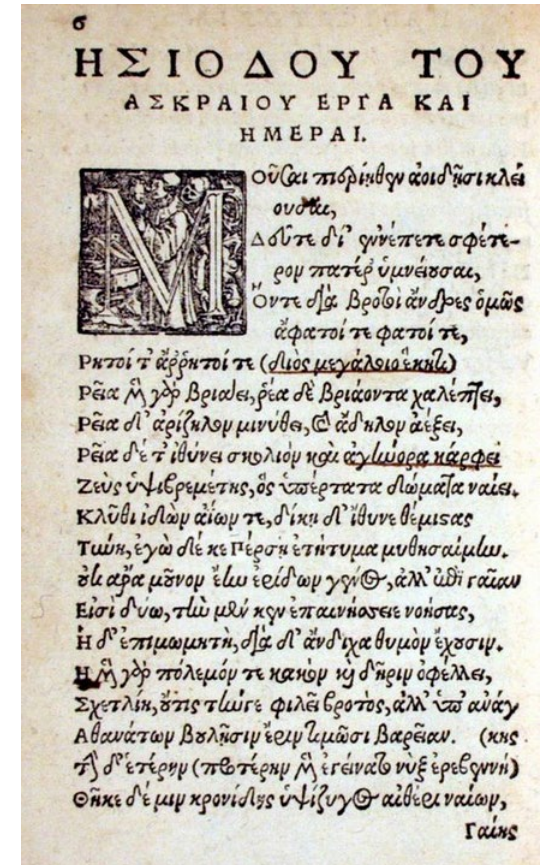 6
ΗΣΙΟΔΟΥ ΤΟΥ
ΑΣΚΡΑΙΟΥ ΕΡΓΑ ΚΑΙ
ΗΜΕΡΑΙ.
ΜΟῦσαι πιερίηθεν ἀοιδῇσι κλεί
ουσαι,
Δεῦτε δί' ἐννέπετε σφέτε-
ρον πατέρ' ὑμνείουσαι,
Ὅντε διὰ βροτοὶ ἄνδρες ὁμῶς
ἄφατοί τε φατοί τε,
Ρητοί τ' ἄρρητοί τε (διὸς μεγάλοιο ἕκητι)
Ρεῖα μὲν γὰρ βριάει, ῥέα δὲ βριάοντα χαλέπτει,
Ρεῖα δ' ἀρίζηλον μινύθει, καὶ ἄδηλον ἀέξει,
Ρεῖα δέ τ' ἰθύνει σκολιὸν καὶ ἀγήνορα κάρφει
Ζεὺς ὑψιβρεμέτης, ὃς ὑπέρτατα δώματα ναίει.
Κλῦθι ἰδὼν ἀΐων τε, δίκῃ δ' ἴθυνε θέμιστας
Τύνη, ἐγὼ δέ κε Πέρσῃ ἐτήτυμα μυθησαίμην.
οὐκ ἄρα μοῦνον ἔην ἐρίδων γένος, ἀλλ' ἐπὶ γαῖαν
Εἰσὶ δύω, τὴν μέν κεν ἐπαινήσειε νοήσας,
Ἡ δ' ἐπιμωμητὴ, διὰ δ' ἄνδιχα θυμὸν ἔχουσιν.
Ἡ μὲν γὰρ πόλεμόν τε κακὸν καὶ δῆριν ὀφέλλει,
Σχετλίη, οὔτις τήνγε φιλεῖ βροτὸς, ἀλλ' ὑπ' ἀνάγ
Ἀθανάτων βουλῇσιν ἔριν τιμῶσι βαρεῖαν. (κης
τὴν δ' ἑτέρην (προτέρην μὲν ἐγείνατο νὺξ ἐρεβεννὴ)
Θῆκε δέ μιν κρονίδης ὑψίζυγος αἰθέρι ναίων,
Γαίης